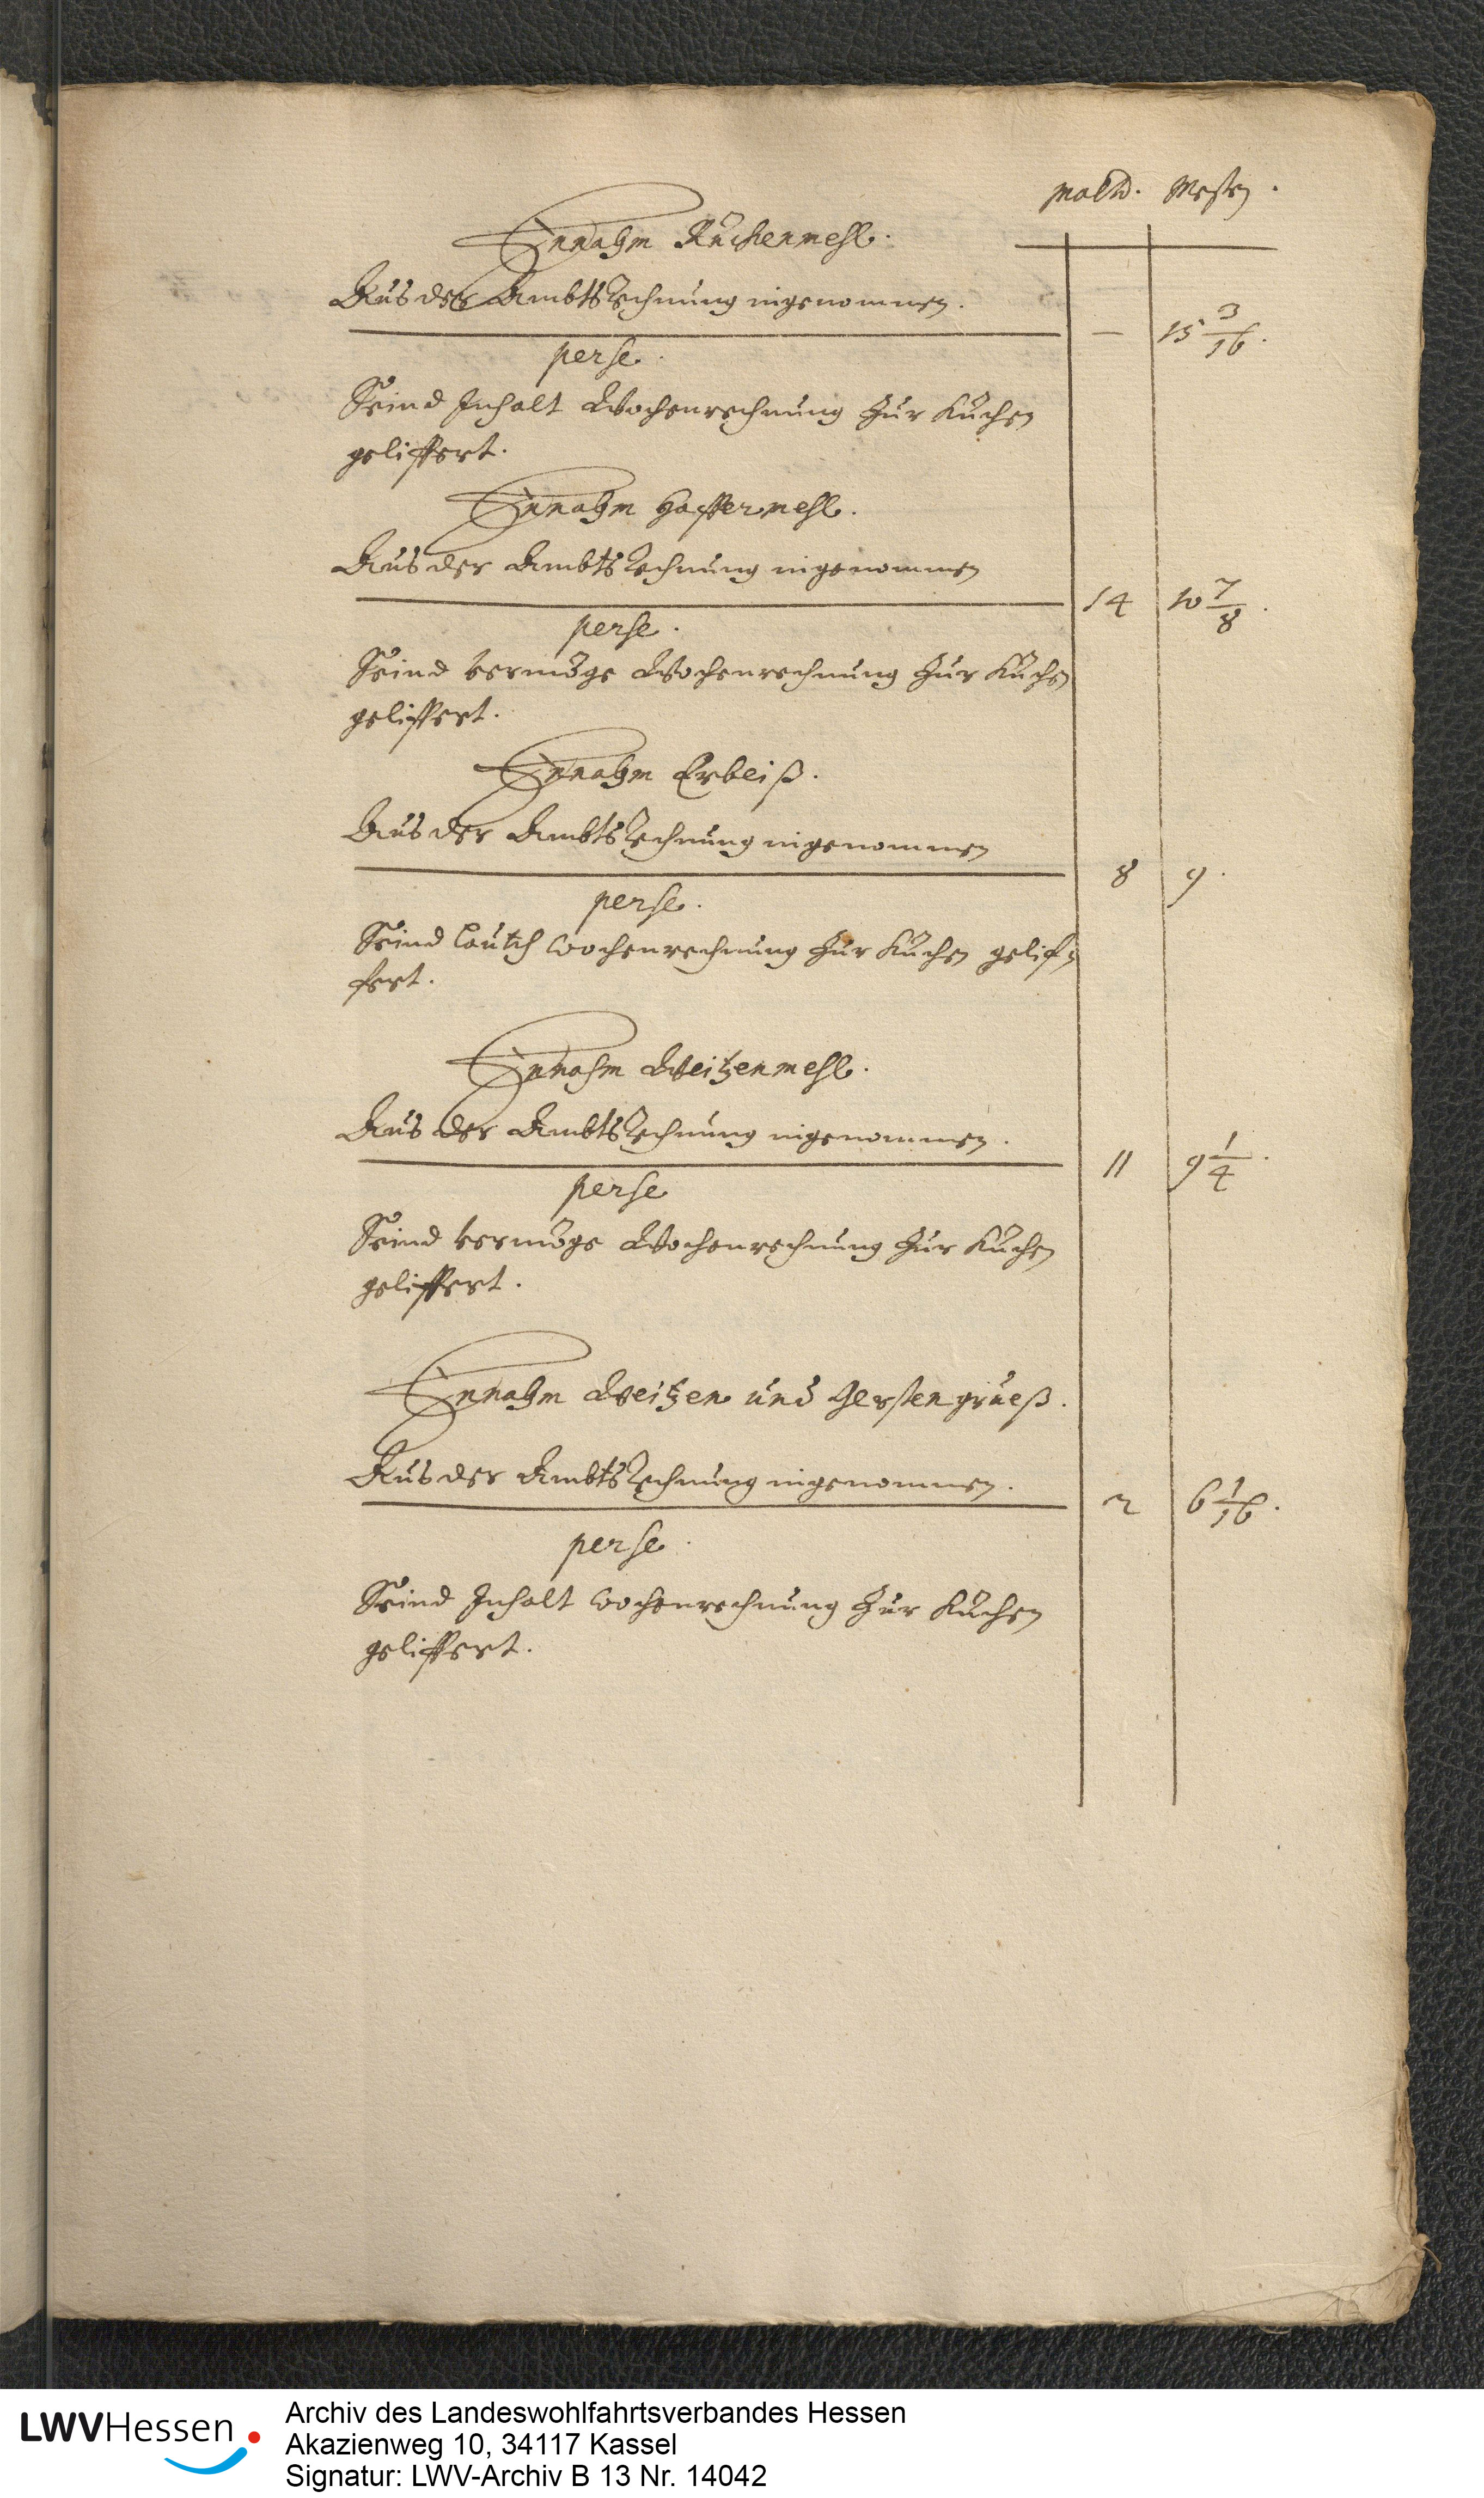 Maltr. Mesten.
Innahm Kuchenmehl.
Aus der Ambts Rechnung ingenommen.
— 15 3/16.
perse.
Seind Inhalt Wochenrechnung Zur Kuchen
geliffert.
Innahm Haffermehl.
Aus der Ambts Rechnung ingenommen
14 10 7/8.
perse.
Seind vermöge Wochenrechnung Zur Kuchen
geliffert.
Innahm Erbeiß.
Aus der Ambts Rechnung ingenommen
8 9.
perse.
Seind Lauth Wochenrechnung Zur Kuchen gelif-
fert.
Innahm Weitzenmehl.
Aus der Ambts Rechnung ingenommen.
11 9 1/4.
perse
Seind vermöge Wochenrechnung Zur Kuchen
geliffert.
Innahm Weitzen und Gerstengrueß.
Aus der Ambts Rechnung ingenommen.
2 6 1/16.
perse.
Seind Inhalt Wochenrechnung Zur Kuchen
geliffert.
LWVHessen
Archiv des Landeswohlfahrtsverbandes Hessen
Akazienweg 10, 34117 Kassel
Signatur: LWV-Archiv B 13 Nr. 14042